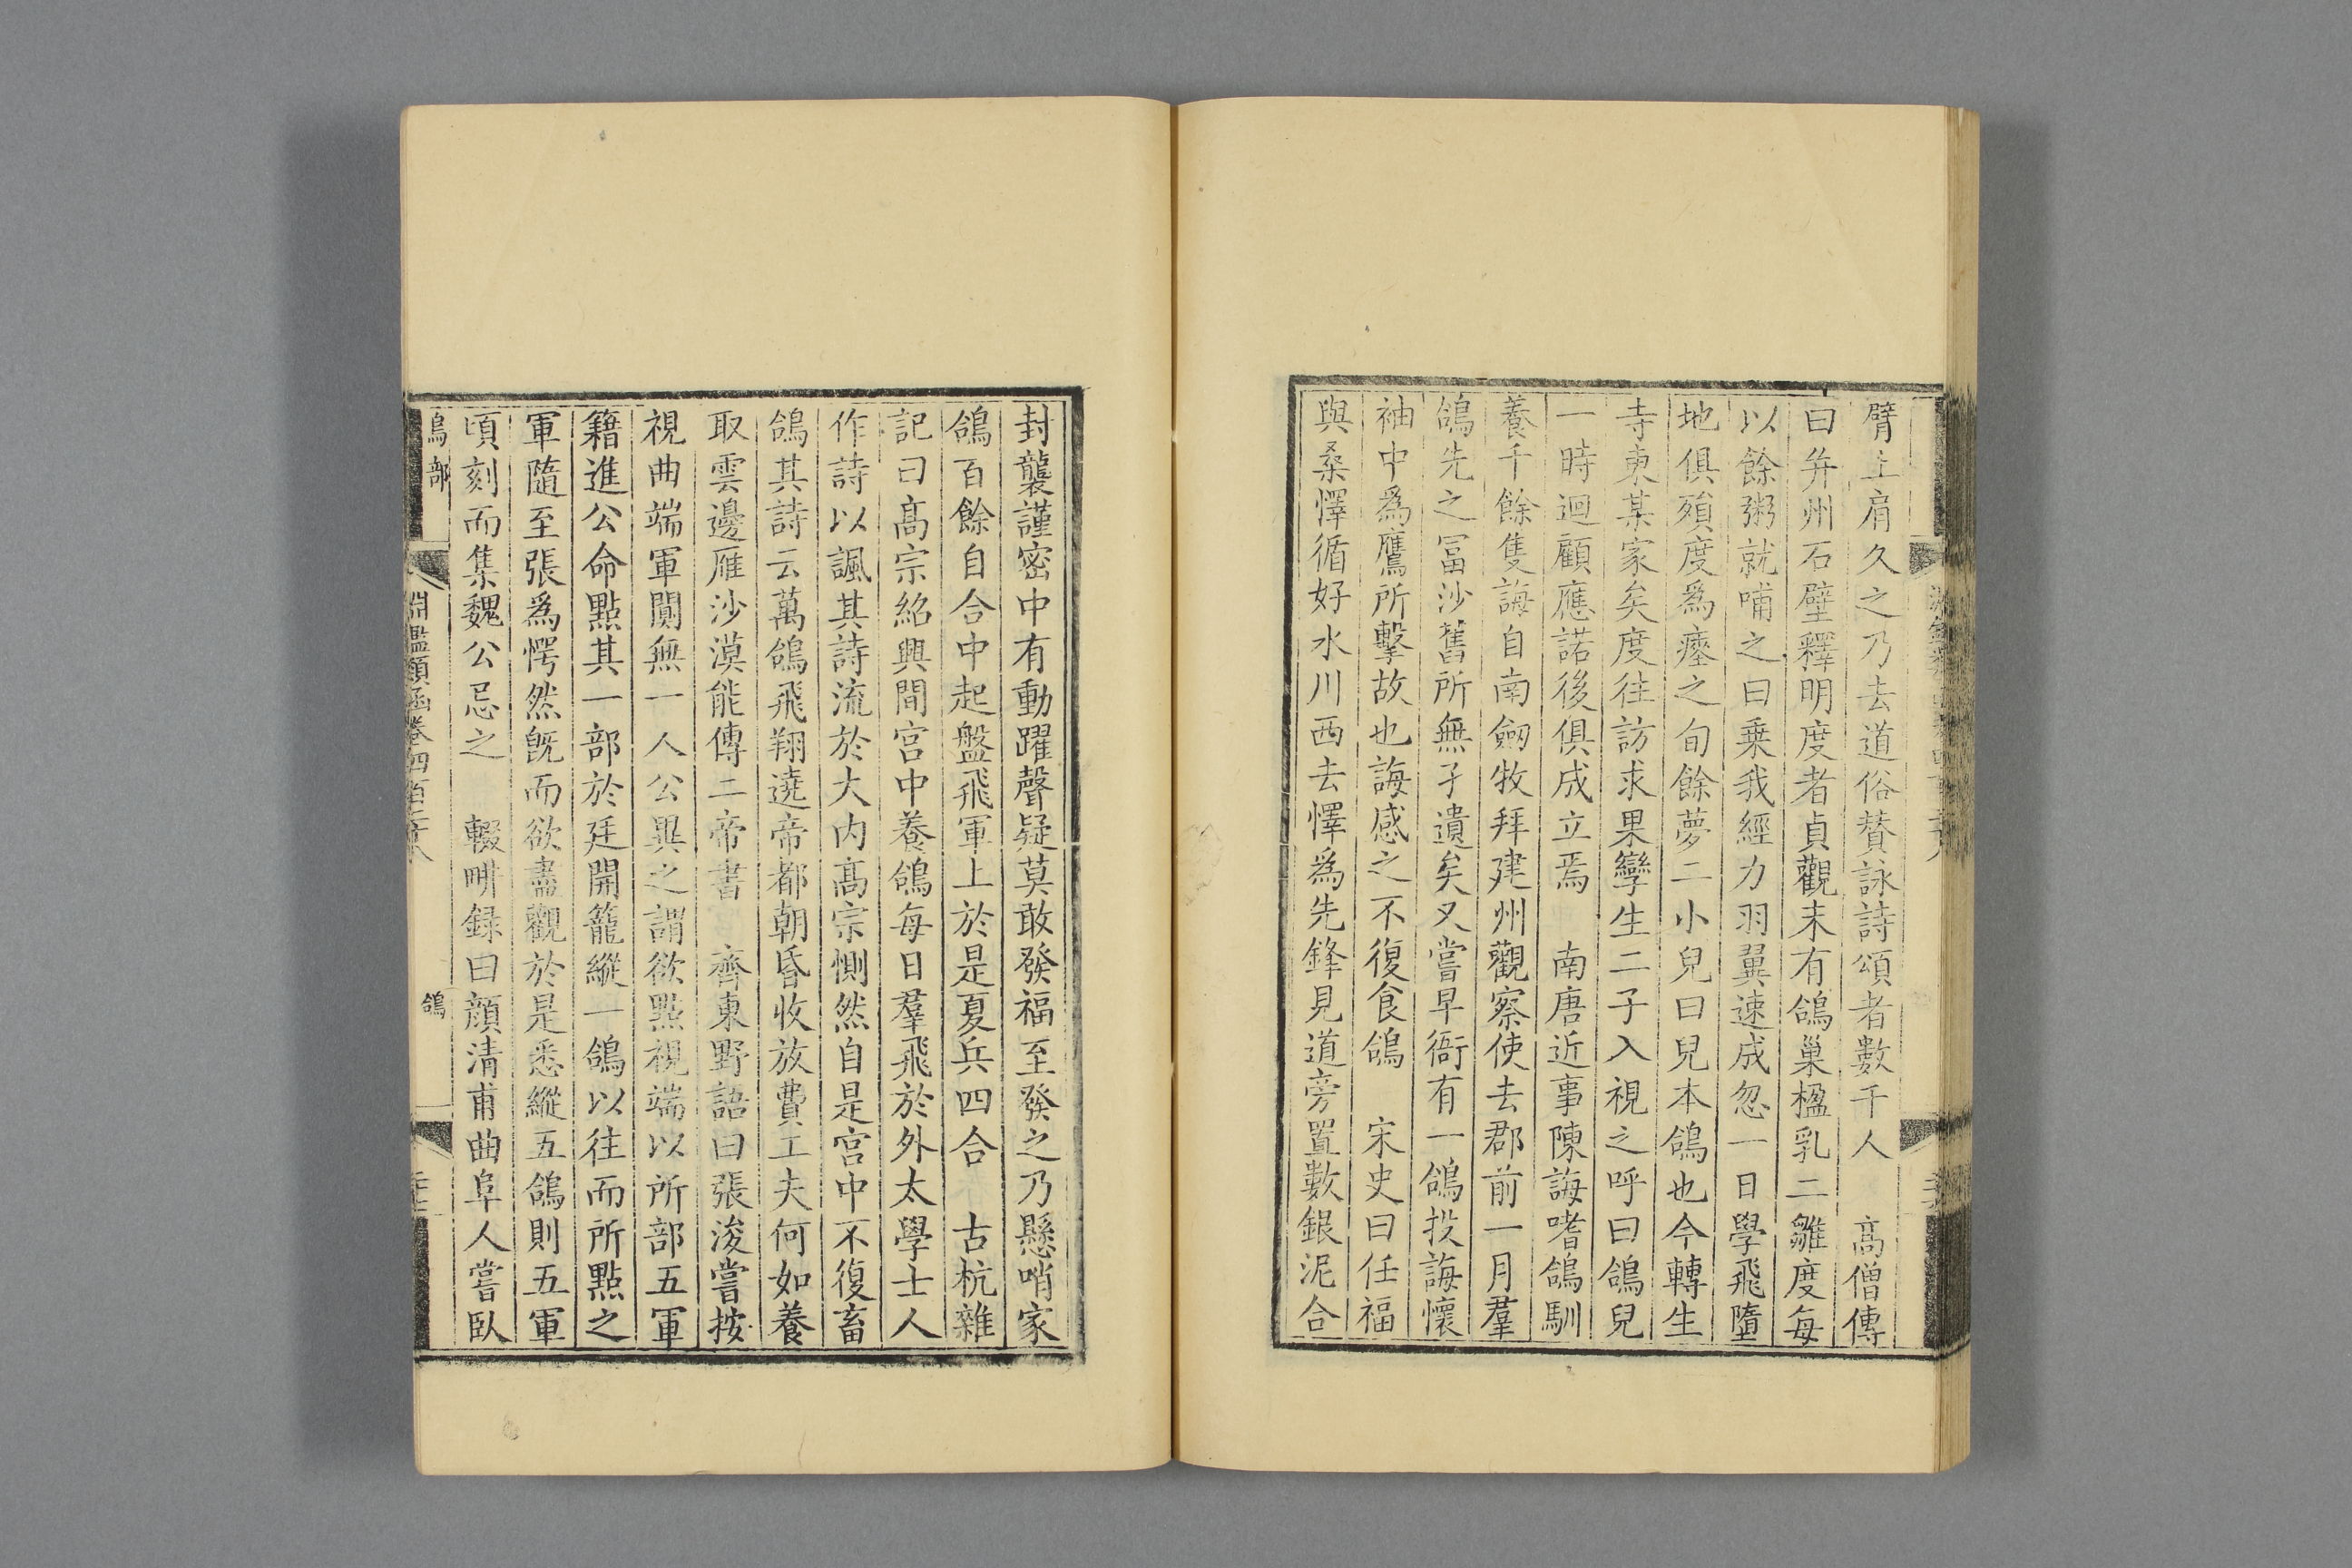 臂上肩久之乃去道俗賛詠詩頌者數千人　高僧傳
曰并州石壁釋明度者貞觀末有鴿巢楹乳二雛度每
以餘粥就哺之曰乗我經力羽翼速成忽一日學飛墮
地俱殞度為瘞之旬餘夢二小兒曰兒本鴿也今轉生
寺東某家矣度往訪求果孿生二子入視之呼曰鴿兒
一時迴顧應諾後俱成立焉　南唐近事陳誨嗜鴿馴
養千餘隻誨自南劔牧拜建州觀察使去郡前一月羣
鴿先之冨沙舊所無孑遺矣又嘗早衙有一鴿投誨懷
袖中為鷹所擊故也誨感之不復食鴿　宋史曰任福
與桑懌循好水川西去懌為先鋒見道旁置數銀泥合
封襲謹密中有動躍聲疑莫敢發福至發之乃懸哨家
鴿百餘自合中起盤飛軍上於是夏兵四合　古杭雜
記曰髙宗紹興間宮中養鴿每日羣飛於外太學士人
作詩以諷其詩流於大内髙宗惻然自是宮中不復畜
鴿其詩云萬鴿飛翔遶帝都朝昏收放費工夫何如養
取雲邊雁沙漠能傳二帝書　齊東野語曰張浚嘗按
視曲端軍闃無一人公異之謂欲點視端以所部五軍
籍進公命點其一部於廷開籠縱一鴿以往而所點之
軍隨至張為愕然旣而欲盡觀於是悉縱五鴿則五軍
頃刻而集魏公忌之　輟畊録曰顔清甫曲阜人嘗臥
鳥部
淵鑑類函卷四百二十八
鴿